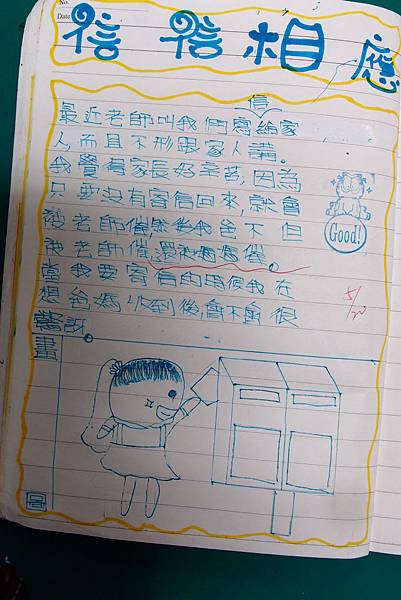 No.
Date
信信相應
最近老師叫我們寫信給家
人,而且不形跟家人講。
我覺得家長好辛苦,因為
只要沒有寄有回來,就會
被老師催,然後我爸不但
被老師催,還被媽媽催。
當我要寄信的時候我在
想爸媽收到後,會不會很
驚訝
Good!
5/20
畫
圖